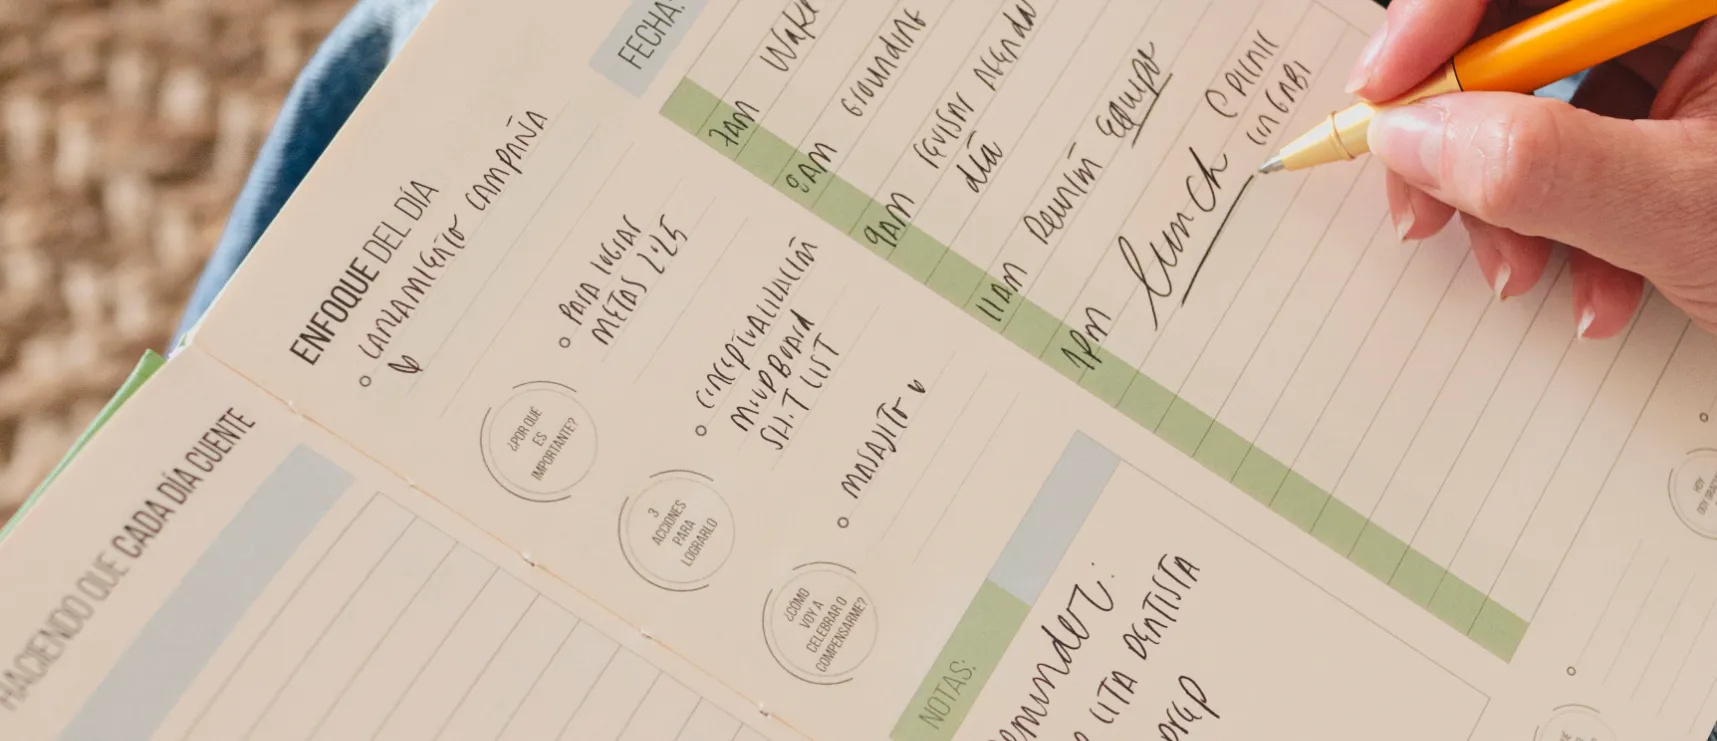 HACIENDO QUE CADA DÍA CUENTE
ENFOQUE DEL DÍA
LANZAMIENTO CAMPAÑA
¿POR QUÉ
ES
IMPORTANTE?
PARA LOGRAR
METAS
3
ACCIONES
PARA
LOGRARLO
CONCEPTUALIZACIÓN
MOODBOARD
SHOT LIST
¿CÓMO
VOY A
CELEBRAR O
COMPENSARME?
MASAJITO
FECHA:
7AM
8AM GROUNDING
9AM REVISAR AGENDA
DÍA
11AM REUNIÓN EQUIPO
1PM Lunch C PICNIC
CON GABI
NOTAS:
CITA DENTISTA
PREP
HOY